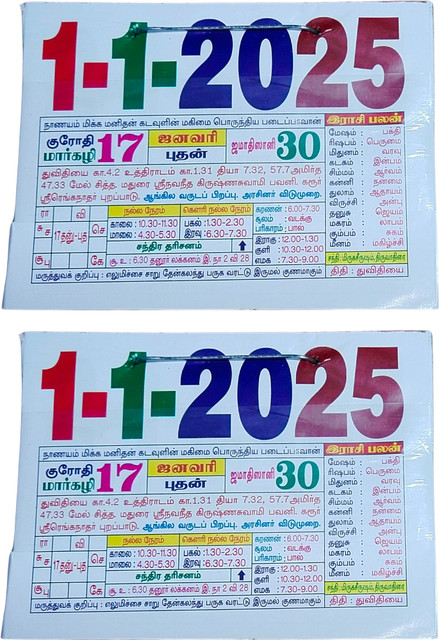 1-1-2025
நாணயம் மிக்க மனிதன் கடவுளின் மகிமை பொருந்திய படைப்பாவான்
இராசி பலன்
குரோதி
மார்கழி 17
ஜனவரி
புதன்
ஜமாதிஸானி 30
துவிதியை கா.4.2 உத்திராடம் கா.1.31 தியா 7.32, 57.7அமிர்த
47.33 மேல் சித்த. மதுரை ஸ்ரீநவநீத கிருஷ்ணசுவாமி பவனி. கரூர்
ஸ்ரீரெங்கநாதர் புறப்பாடு. ஆங்கில வருடப் பிறப்பு. அரசினர் விடுமுறை.
மேஷம் : பக்தி
ரிஷபம் : பெருமை
மிதுனம் : வரவு
கடகம் : இன்பம்
சிம்மம் : ஆதரவு
கன்னி : நன்மை
துலாம் : ஆதாயம்
விருச்சி : அன்பு
தனுசு : ஜெயம்
மகரம் : லாபம்
கும்பம் : சுகம்
மீனம் : மகிழ்ச்சி
ரா வி
சு 17தனு-பத் செ
ச கே
நல்ல நேரம்
காலை: 10.30-11.30
மாலை: 4.30-5.30
கௌரி நல்ல நேரம்
பகல்: 1.30-2.30
இரவு: 6.30-7.30
சந்திர தரிசனம்
சூ. உ : 6.30 தனுர் லக்கனம் இ. நா 2 வி 28
கரணன் : 6.00-7.30
சூலம் : வடக்கு
பரிகாரம் : பால்
இராகு : 12.00-1.30
குளி : 10.30-12.00
எமக : 7.30-9.00
சந்தி : மிருகசீருஷம், திருவாதிரை
திதி : துவிதியை
மருத்துவக் குறிப்பு : எலுமிச்சை சாறு தேன்கலந்து பருக வரட்டு இருமல் குணமாகும்
1-1-2025
நாணயம் மிக்க மனிதன் கடவுளின் மகிமை பொருந்திய படைப்பாவான்
இராசி பலன்
குரோதி
மார்கழி 17
ஜனவரி
புதன்
ஜமாதிஸானி 30
துவிதியை கா.4.2 உத்திராடம் கா.1.31 தியா 7.32, 57.7அமிர்த
47.33 மேல் சித்த. மதுரை ஸ்ரீநவநீத கிருஷ்ணசுவாமி பவனி. கரூர்
ஸ்ரீரெங்கநாதர் புறப்பாடு. ஆங்கில வருடப் பிறப்பு. அரசினர் விடுமுறை.
மேஷம் : பக்தி
ரிஷபம் : பெருமை
மிதுனம் : வரவு
கடகம் : இன்பம்
சிம்மம் : ஆதரவு
கன்னி : நன்மை
துலாம் : ஆதாயம்
விருச்சி : அன்பு
தனுசு : ஜெயம்
மகரம் : லாபம்
கும்பம் : சுகம்
மீனம் : மகிழ்ச்சி
ரா வி
சு 17தனு-பத் செ
ச கே
நல்ல நேரம்
காலை: 10.30-11.30
மாலை: 4.30-5.30
கௌரி நல்ல நேரம்
பகல்: 1.30-2.30
இரவு: 6.30-7.30
சந்திர தரிசனம்
சூ. உ : 6.30 தனுர் லக்கனம் இ. நா 2 வி 28
கரணன் : 6.00-7.30
சூலம் : வடக்கு
பரிகாரம் : பால்
இராகு : 12.00-1.30
குளி : 10.30-12.00
எமக : 7.30-9.00
சந்தி : மிருகசீருஷம், திருவாதிரை
திதி : துவிதியை
மருத்துவக் குறிப்பு : எலுமிச்சை சாறு தேன்கலந்து பருக வரட்டு இருமல் குணமாகும்